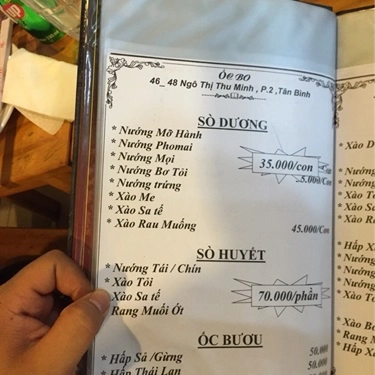 Ốc BO
46_ 48 Ngô Thị Thu Minh , P.2 ,Tân Bình
SÒ DƯƠNG
* Nướng Mỡ Hành
* Nướng Phomai
* Nướng Mọi
* Nướng Bơ Tỏi
* Nướng trứng
* Xào Me
* Xào Sa tế
* Xào Rau Muống
35.000/con
45.000/Con
SÒ HUYẾT
* Nướng Tái / Chín
* Xào Tỏi
Xào Sa tế
Rang Muối Ớt
70.000/phần
ỐC BƯƠU
* Hấp Sả /Gừng 50.000
* Hấp Thái Lan
* Xào
* Nướng
* Nướng
* Xào
* Xào Sa
* Xào
* Hấp
* Nướng
* Nướng
* Nướng
* Xào
* Xào
* Xào
* Hấp